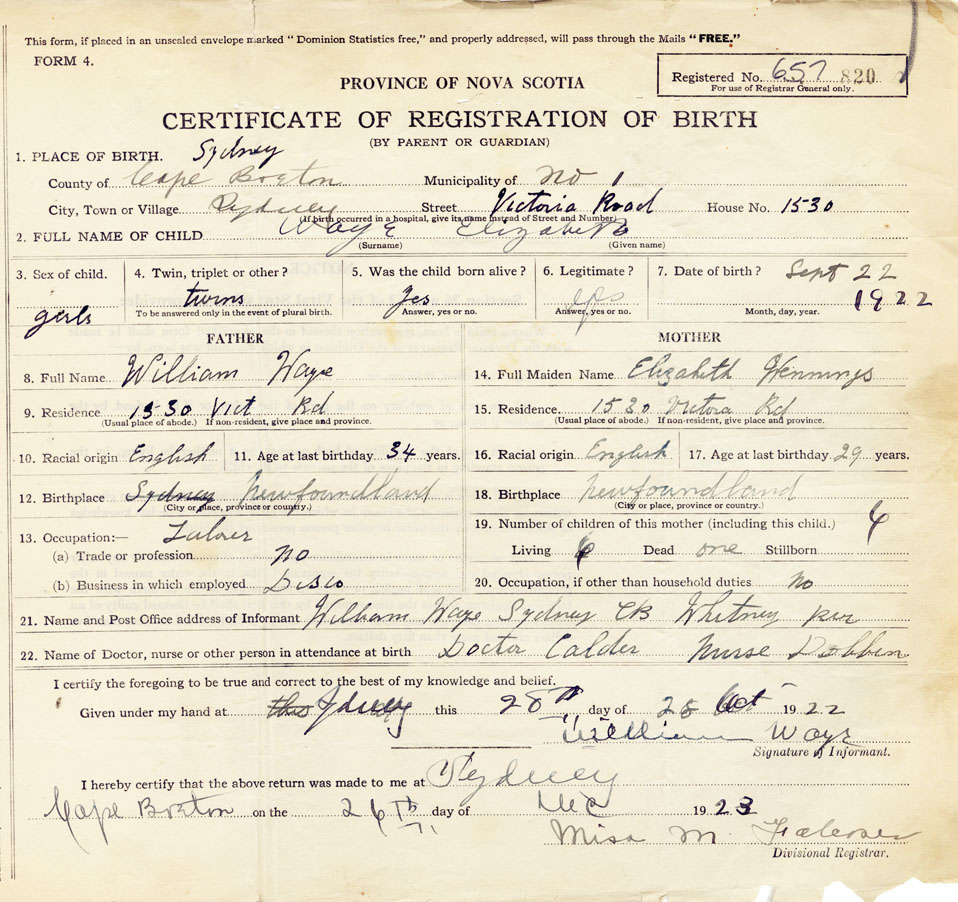 This form, if placed in an unsealed envelope marked "Dominion Statistics free," and properly addressed, will pass through the Mails "FREE."
FORM 4.
Registered No. 657 820
For use of Registrar General only.
PROVINCE OF NOVA SCOTIA
CERTIFICATE OF REGISTRATION OF BIRTH
(BY PARENT OR GUARDIAN)
1. PLACE OF BIRTH. Sydney
County of Cape Breton Municipality of No 1
City, Town or Village Sydney Street Victoria Road House No. 1530
(If birth occurred in a hospital, give its name instead of Street and Number)
2. FULL NAME OF CHILD Waye Elizabeth
(Surname) (Given name)
3. Sex of child. 4. Twin, triplet or other? 5. Was the child born alive? 6. Legitimate? 7. Date of birth? Sept 22
girls twins yes yes 1922
To be answered only in the event of plural birth. Answer, yes or no. Answer, yes or no. Month, day, year.
FATHER MOTHER
8. Full Name William Waye 14. Full Maiden Name Elizabeth Hennings
9. Residence 1530 Vict Rd 15. Residence. 1530 Victoria Rd
(Usual place of abode.) If non-resident, give place and province. (Usual place of abode.) If non-resident, give place and province.
10. Racial origin English 11. Age at last birthday 34 years. 16. Racial origin English 17. Age at last birthday 29 years.
12. Birthplace Sydney Newfoundland 18. Birthplace Newfoundland
(City or place, province or country.) (City or place, province or country.)
13. Occupation:— Labrer 19. Number of children of this mother (including this child.) 6
(a) Trade or profession no Living 6 Dead one Stillborn
(b) Business in which employed Disco 20. Occupation, if other than household duties No
21. Name and Post Office address of Informant William Waye Sydney CB Whitney Pier
22. Name of Doctor, nurse or other person in attendance at birth Doctor Calder Nurse Dobbin
I certify the foregoing to be true and correct to the best of my knowledge and belief.
Given under my hand at Sydney this 28th day of 28 Oct 1922
William Waye
Signature of Informant.
I hereby certify that the above return was made to me at Sydney
Cape Breton on the 26th day of Dec 1923
Miss M.
Divisional Registrar.